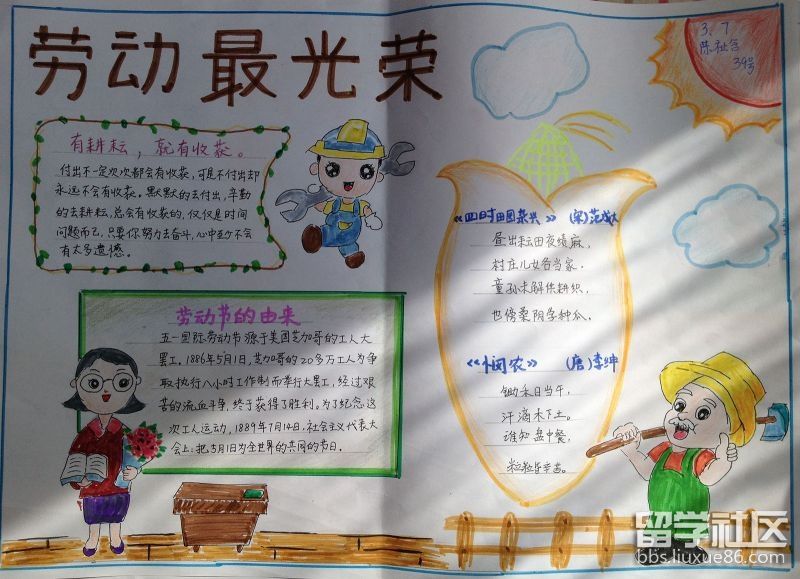 劳动最光荣
3.7
39号
有耕耘，就有收获。
付出不一定次次都会有收获，可是不付出却
永远不会有收获。默默的去付出，辛勤
的去耕耘，总会有收获的，仅仅是时间
问题而已，只要你努力去奋斗，心中至少不会
有太多遗憾。
劳动节的由来
五一国际劳动节源于美国芝加哥的工人大
罢工。1886年5月1日，芝加哥的20多万工人为争
取执行八小时工作制而举行大罢工，经过艰
苦的流血斗争，终于获得了胜利。为了纪念这
次工人运动，1889年7月14日，社会主义代表大
会上：把5月1日为全世界的共同的节日。
《四时田园杂兴》（宋）范成大
昼出耘田夜绩麻，
村庄儿女各当家。
童孙未解供耕织，
也傍桑阴学种瓜。
《悯农》（唐）李绅
锄禾日当午，
汗滴木下土。
谁知盘中餐，
粒粒皆辛苦。
留学社区
bbs.liuxue86.com